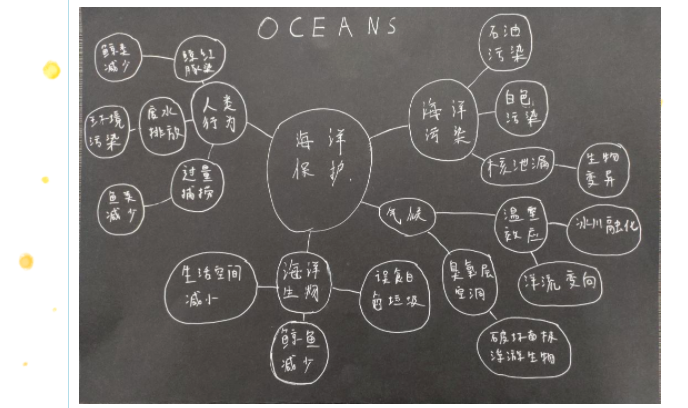 OCEANS
海洋
保护
海洋
污染
石油
污染
白色
污染
核泄漏
生物
变异
气候
温室
效应
冰川融化
洋流变向
臭氧层
空洞
破坏
浮游生物
海洋
生物
误食白
色垃圾
鲸鱼
减少
生活空间
减小
人类
行为
减少
废水
排放
环境
污染
过量
捕捞
鱼类
减少